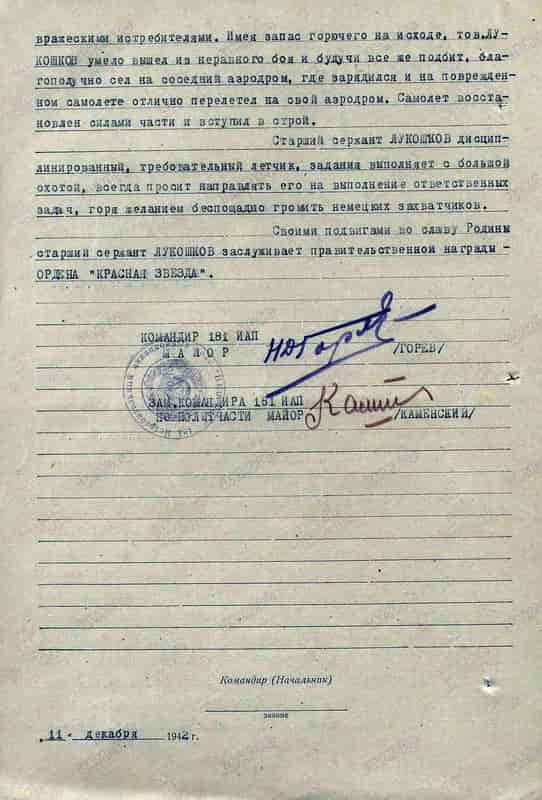 вражескими истребителями. Имея запас горючего на исходе, тов.ЛУ-
КОШКОВ умело вышел из неравного боя и будучи все же подбит, бла-
гополучно сел на соседний аэродром, где зарядился и на поврежден-
ном самолете отлично перелетел на свой аэродром. Самолет восста-
новлен силами части и вступил в строй.
Старший сержант ЛУКОШКОВ дисцип-
линированный, требовательный летчик, задания выполняет с большой
охотой, всегда просит направлять его на выполнение ответственных
задач, горя желанием беспощадно громить немецких захватчиков.
Своими подвигами во славу Родины
старший сержант ЛУКОШКОВ заслуживает правительственной награды -
ОРДЕНА "КРАСНАЯ ЗВЕЗДА".
КОМАНДИР 181 ИАП
МАЙОР
/ГОРЕВ/
ЗАМ.КОМАНДИРА 181 ИАП
ПО ПОЛИТЧАСТИ МАЙОР /КАМЕНСКИЙ/
Командир (Начальник)
звание
"11" декабря 1942 г.